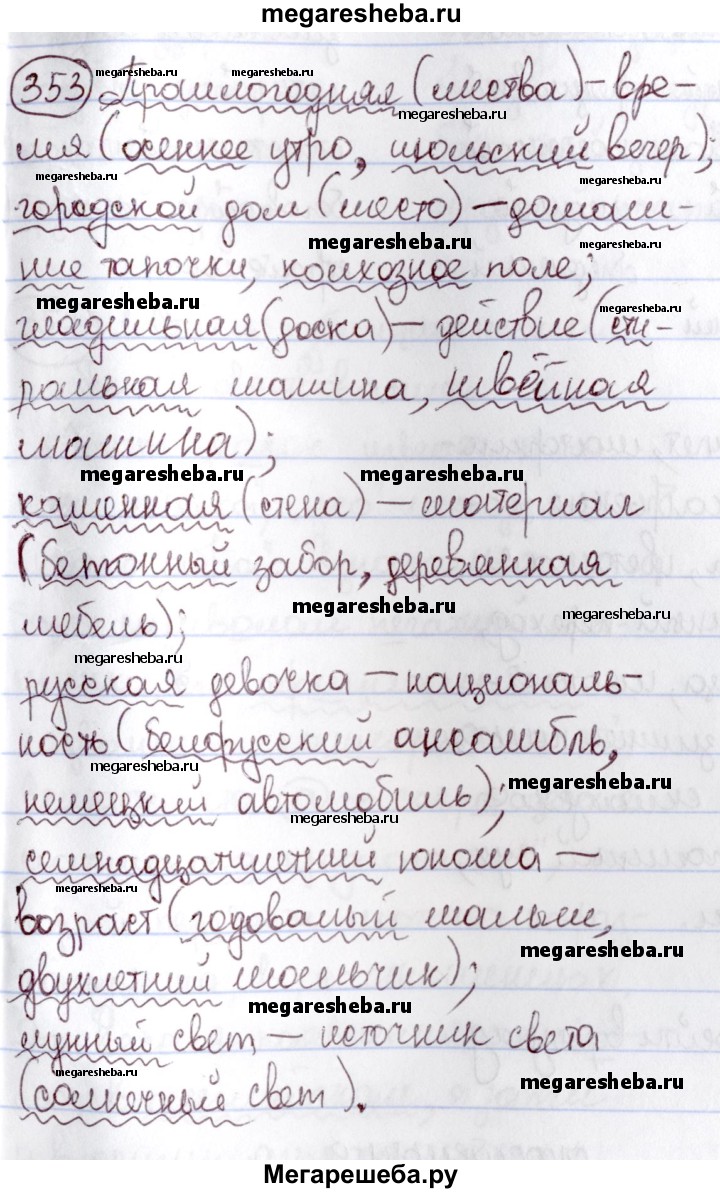 megaresheba.ru
353 Прошлогодняя (листва) – вре-
megaresheba.ru megaresheba.ru
megaresheba.ru
мя (осеннее утро, июльский вечер);
megaresheba.ru megaresheba.ru
городской дом (место) – домаш-
megaresheba.ru megaresheba.ru
ние тапочки, колхозное поле;
megaresheba.ru
megaresheba.ru
гладильная (доска) – действие (сти-
ральная машина, швейная
машина);
megaresheba.ru megaresheba.ru
каменная (стена) – материал
(бетонный забор, деревянная
megaresheba.ru megaresheba.ru
мебель);
megaresheba.ru
русская девочка – националь-
ность (белорусский ансамбль,
megaresheba.ru megaresheba.ru
немецкий автомобиль);
megaresheba.ru
семнадцатилетний юноша –
megaresheba.ru
возраст (годовалый малыш,
megaresheba.ru
двухлетний мальчик);
megaresheba.ru
лунный свет – источник света
megaresheba.ru megaresheba.ru
(солнечный свет).
Мегарешеба.ру